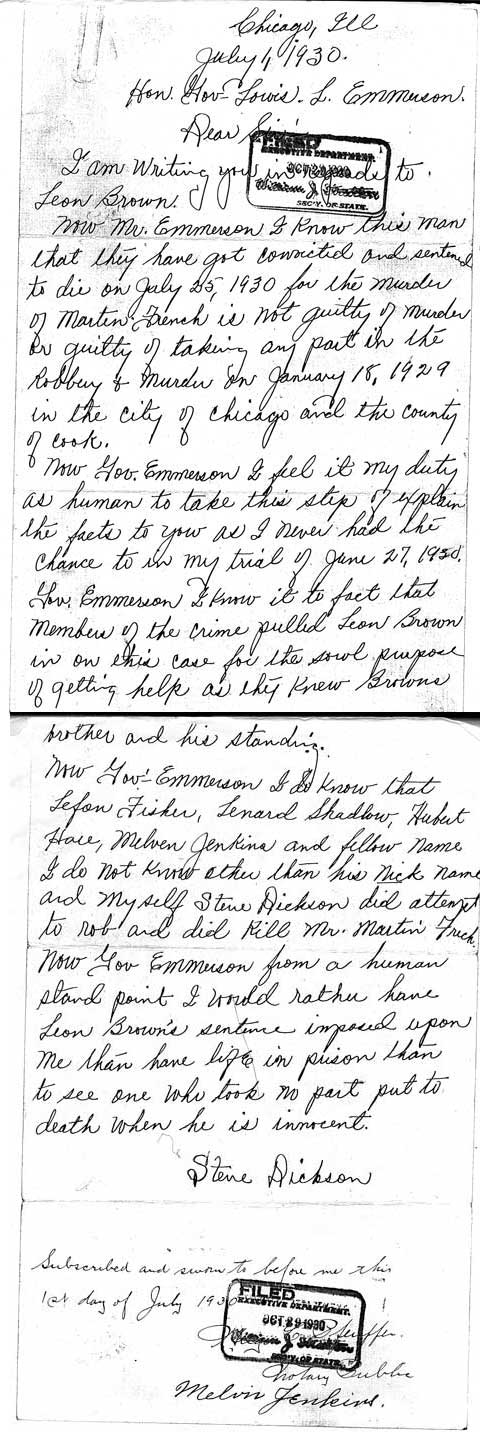 Chicago, Ill
July 1, 1930.
Hon. Gov- Lowis. L. Emmerson.
Dear Sir:
FILED
EXECUTIVE DEPARTMENT.
OCT 29 1930
William J. Stratton
SEC'Y. OF STATE.
I am Writing you in regade to.
Leon Brown.
Now Mr. Emmerson I Know this man
that they have got convicted and sentened
to die on July 25, 1930 for the murder
of Martin French is not guilty of murder
or guilty of taking any part in the
Robbery & Murder on January 18, 1929
in the city of Chicago and the county
of cook.
Now Gov. Emmerson I feel it my duty
as human to take this step of explain
the facts to you as I never had the
chance to in my trial of June 27, 1930.
Gov. Emmerson I Know it to fact that
members of the crime pulled Leon Brown
in on this case for the sowl purpose
of getting help as they Knew Browns
brother and his standing.
Now Gov- Emmerson I do Know that
Lefon Fisher, Lenard Shadlow, Hubert
Hace, Melven Jenkins and fellow name
I do not Know other than his Nick name
and myself Steve Dickson did attempt
to rob and did Kill Mr. Martin Frech.
Now Gov Emmerson from a human
stand point I would rather have
Leon Brown's sentence imposed upon
me than have life in prison than
to see one who took no part put to
death when he is innocent.
Steve Dickson
Subscribed and sworn to before me this
1st day of July 1930
FILED
EXECUTIVE DEPARTMENT.
OCT 29 1930
William J. Stratton
SEC'Y. OF STATE.
Notary Public
Melvin Jenkins.